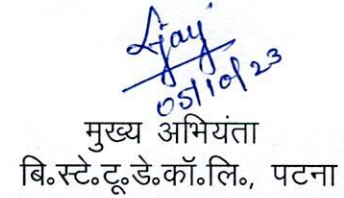 Ajay
05/10/23
मुख्य अभियंता
बि॰स्टे॰टू॰डे॰कॉ॰लि॰, पटना